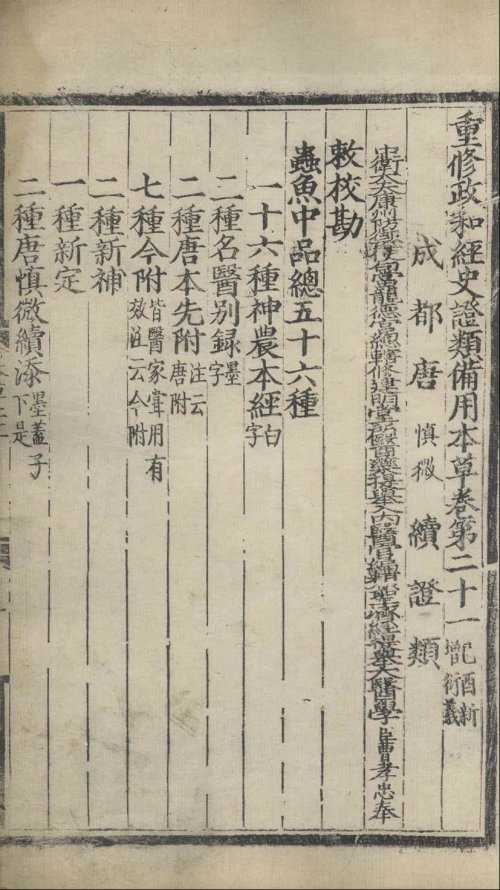 重修政和經史證類備用本草卷第二十一 己酉新增衍義
成都唐慎微續證類
中衛大夫康州防禦使句當龍德宮總轄修建明堂所醫藥提舉入內醫官編類聖濟經提舉太醫學臣曹孝忠奉
敕校勘
蟲魚中品總五十六種
一十六種神農本經白字
二種名醫別録墨字
二種唐本先附注云唐附
七種今附皆醫家嘗用有效注云今附
二種新補
一種新定
二種唐慎微續添墨蓋子下是